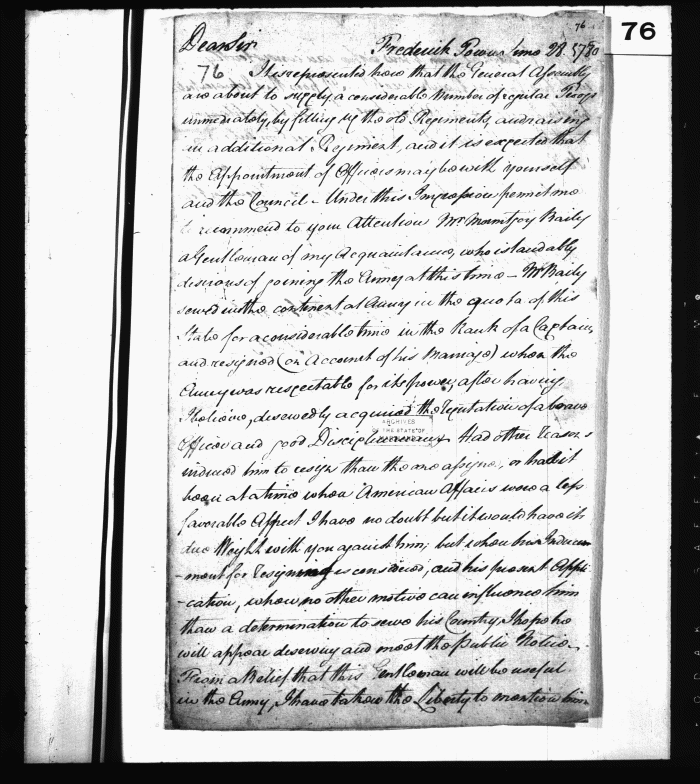 76
76
Dear Sir
Frederick Town June 28. 1780
76 It is represented here that the General Assembly
are about to supply a considerable Number of regular Troops
immediately, by filling up the old Regiments, and raising
an additional Regiment, and it is expected that
the Appointment of Officers may be with yourself
and the Council – Under this Impression permit me
to recommend to your Attention Mr. Mountjoy Baily
a Gentleman of my Acquaintance, who is laudably
desirous of joining the Army at this time – Mr Baily
served in the continental Army in the quota of this
State for a considerable time in the Rank of a Captain,
and resigned (on Account of his Marriage) when the
Army was respectable for its power, after having
I believe, deservedly acquired the Reputation of a brave
Officer and good Disciplinarian. Had other Reasons
ARCHIVES
OF THE STATE OF
induced him to resign than the one assigned, or had it
been at a time when American Affairs wore a less
favorable Aspect I have no doubt but it would have its
due Weight with you against him; but when his Induce-
-ment for resigning is considered, and his present Appli-
-cation, when no other motive can influence him
than a determination to serve his Country, I hope he
will appear deserving and meet the Public Notice.
From a Belief that this Gentleman will be useful
in the Army, I have taken the Liberty to mention him